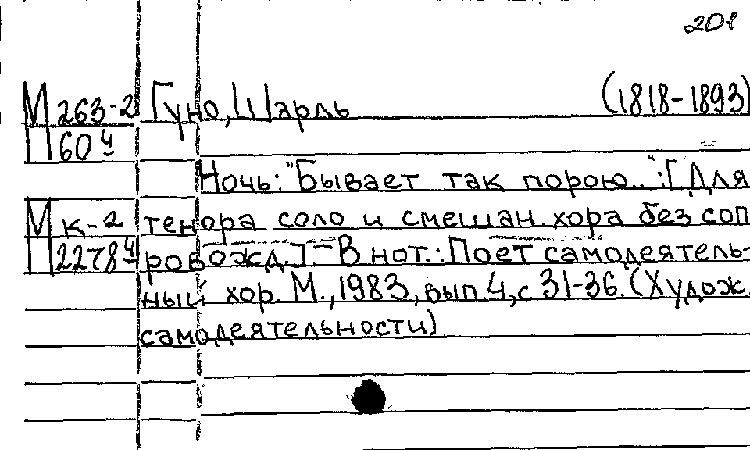 201
М 263-2 Гуно, Шарль (1818-1893)
П 60 ч
Ночь: "Бывает так порою..": [Для
М к-2 тенора соло и смешан. хора без соп
П 2278 ч ровожд.] - В нот.: Поет самодеятель-
ный хор. М., 1983, вып. 4, с 31-36. (Худож.
самодеятельности)